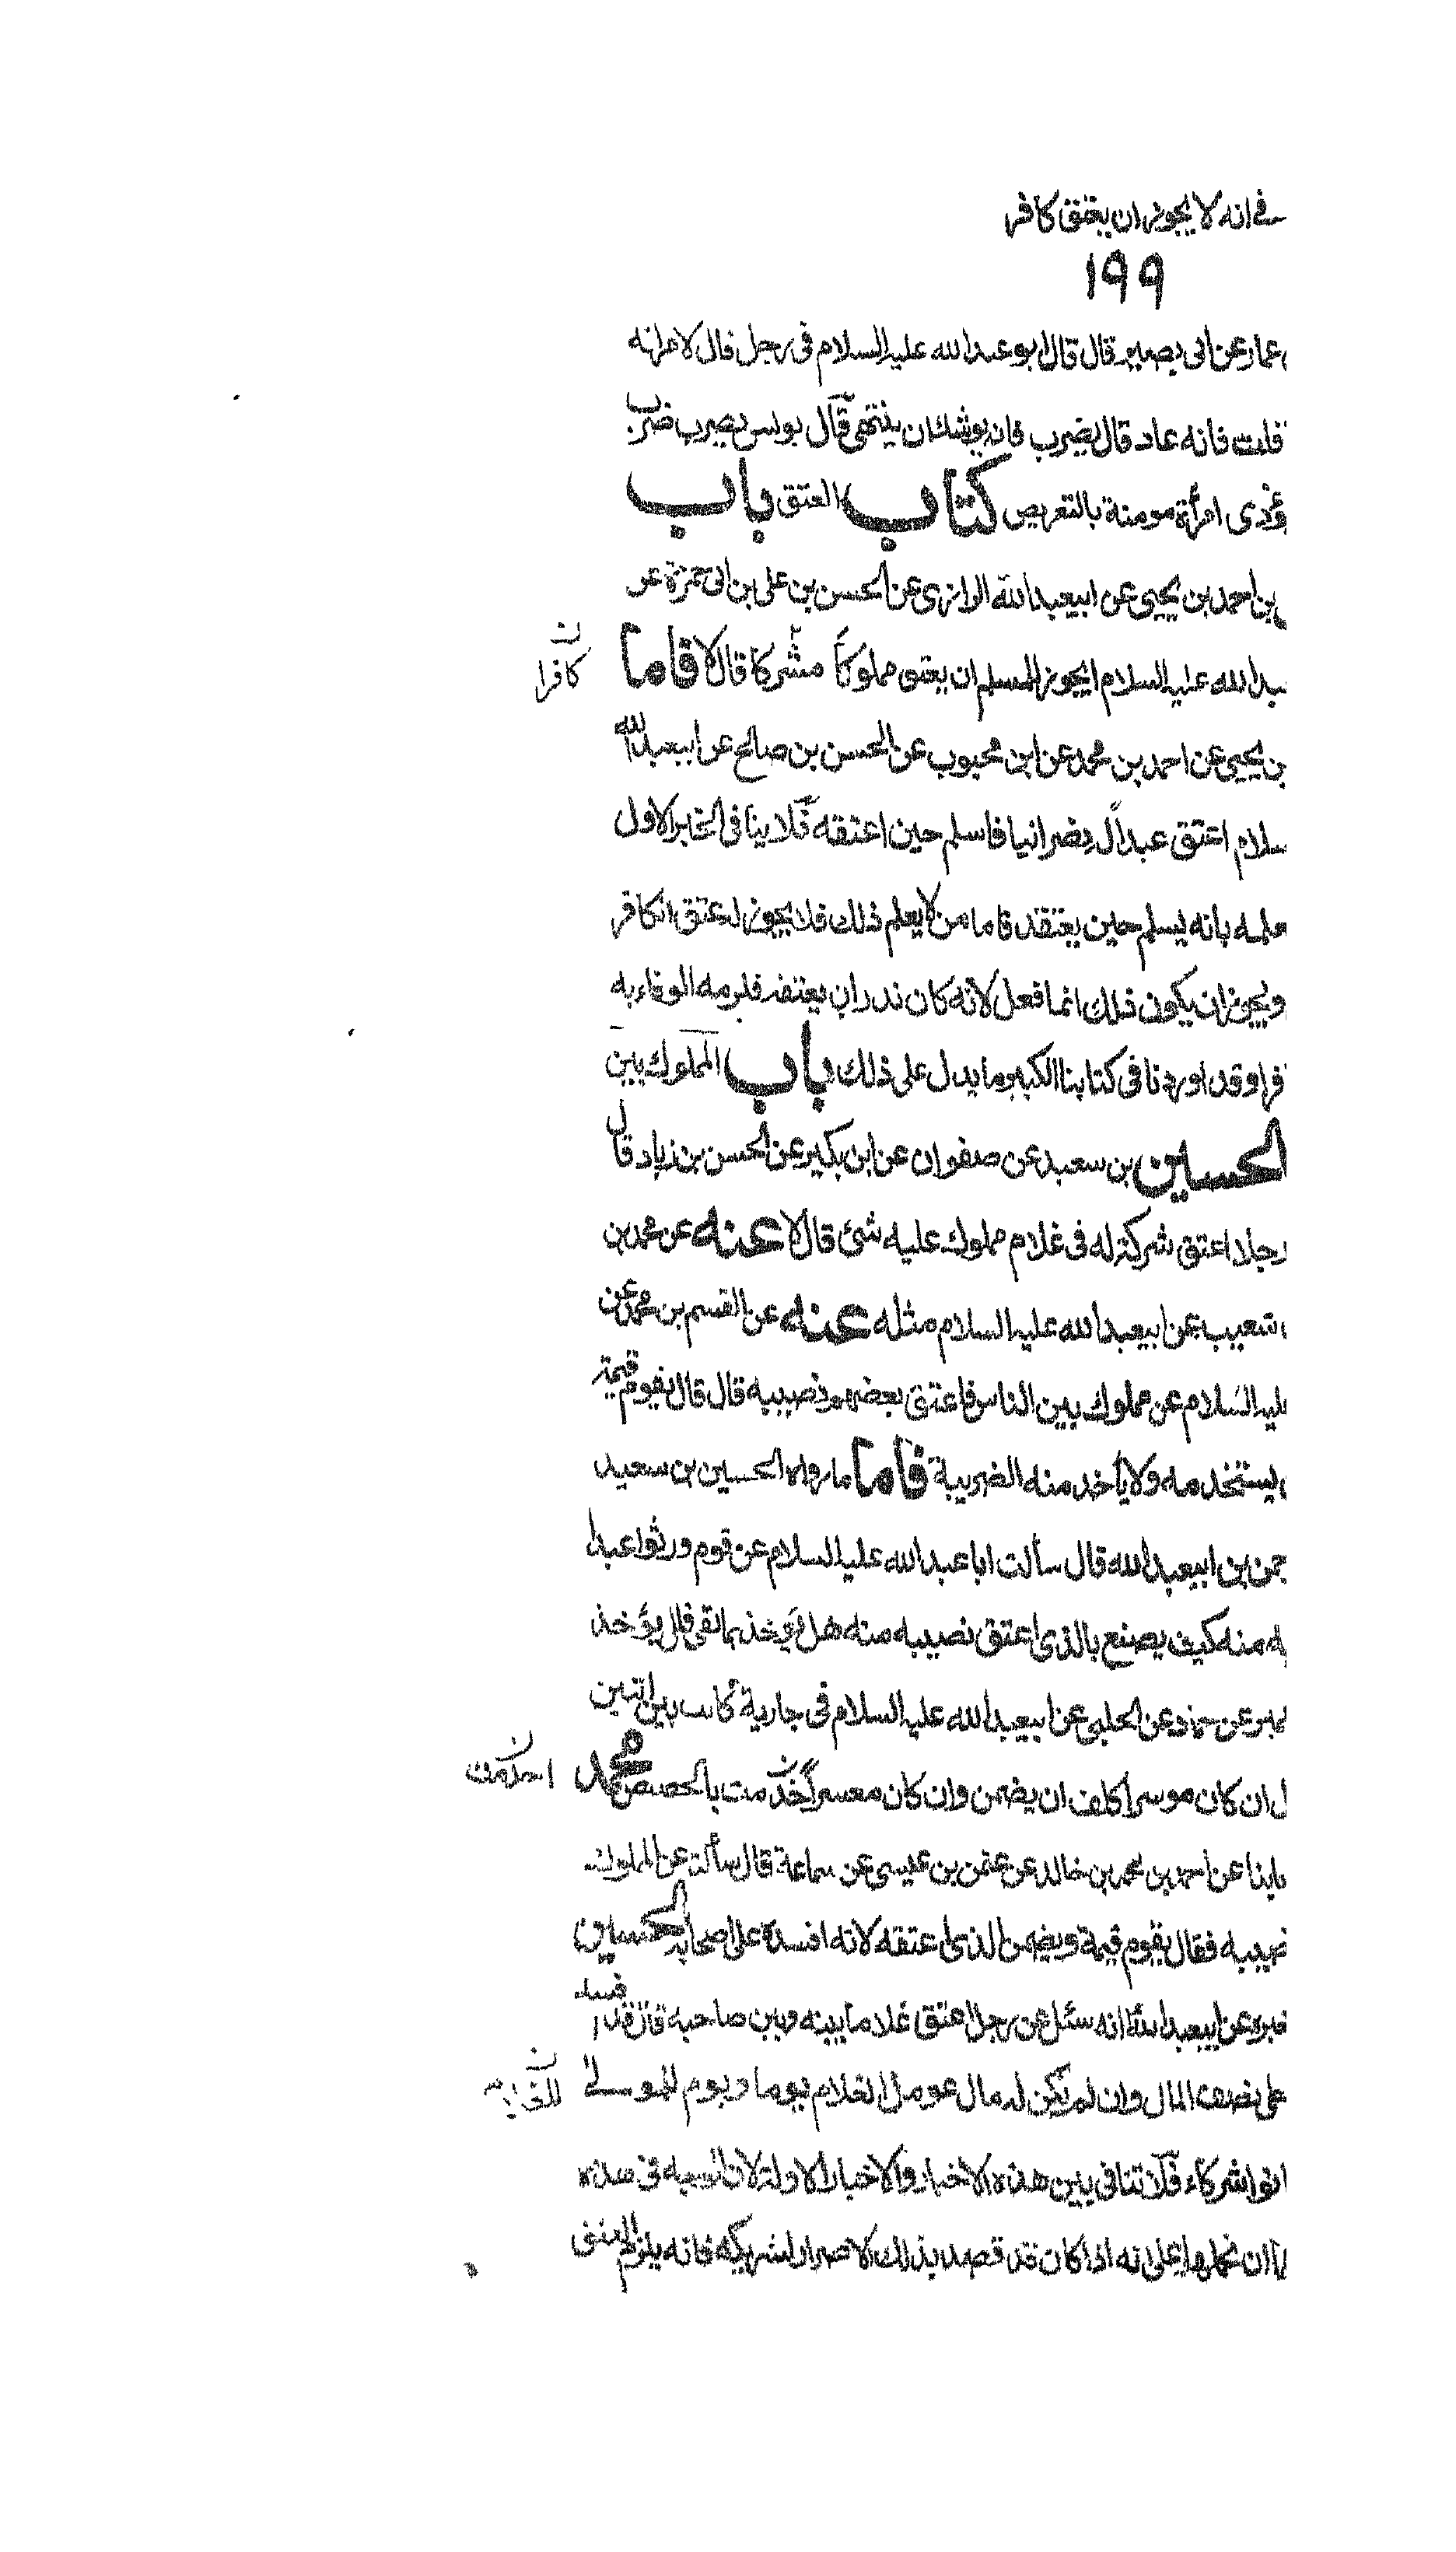 في انه لا يجوز ان يعتق كافر
١٩٩
عمار عن ابى بصير قال قال ابو عبد الله عليه السلام فى رجل قال لامراته
فلت فانه عاد قال يضرب فانه يوشك ان ينتهى قال يونس يضرب ضرب
يؤذى امرأة مومنة بالتعريض كتاب العتق باب
بن احمد بن يحيى عن ابيعبد الله الرازى عن الحسن بن على بن ابى حمزة عن
عبد الله عليه السلام ايجوز للمسلم ان يعتق مملوكا مشركا قال لا فاما
كافرا ن
بن يحيى عن احمد بن محمد عن ابن محبوب عن الحسن بن صالح عن ابيعبد الله
سلام اعتق عبداً له نصرانيا فاسلم حين اعتقه فلا ينافى الخبر الاول
علمه بانه يسلم حين يعتقه فاما من لا يعلم ذلك فلا يجوز له عتق الكافر
ويجوز ان يكون ذلك انما فعل لانه كان نذر ان يعتقه فلزمه الوفاء به
فرا وقد اوردنا فى كتابنا الكبير ما يدل على ذلك باب المملوك بين
الحسين بن سعيد عن صفوان عن ابن بكير عن الحسن بن زياد قال
رجلا اعتق شركة له فى غلام مملوك عليه شئ قال لا عنه عن محمد بن
شعيب عن ابيعبد الله عليه السلام مثله عنه عن القسم بن محمد عن
عليه السلام عن مملوك بين الناس فاعتق بعضهم نصيبه قال قال يقوم قيمة
يستخدمه ولا يأخذ منه الضريبة فاما ما رواه الحسين بن سعيد
حمن بن ابيعبد الله قال سألت ابا عبد الله عليه السلام عن قوم ورثوا عبدا
به منه كيف يصنع بالذى اعتق نصيبه منه هل يؤخذ بما بقى قال يؤخذ
عمير عن حماد عن الحلبى عن ابيعبد الله عليه السلام فى جارية كانت بين اثنين
ل ان كان موسرا كلف ان يضمن وان كان معسرا خدمت بالحصص محمد
اخدمت ن
ابنا عن احمد بن محمد بن خالد عن عثمن بن عيسى عن سماعة قال سألته عن المملوك
نصيبه فقال يقوم قيمة ويضمن الذى اعتقه لانه افسده على اصحابه الحسين
خبره عن ابيعبد الله انه سئل عن رجل اعتق غلاما بينه وبين صاحبه قال قد افسد
على نصف المال وان لم يكن له مال عومل الغلام يوما ويوم للمولى
للغلام ن
انوا شركاء فلا تنافى بين هذه الاخبار والاخبار الاولة لان الوجه فى هذه
ان نحملها على انه اذا كان قد قصد بذلك الاضرار لشريكه فانه يلزم العتق